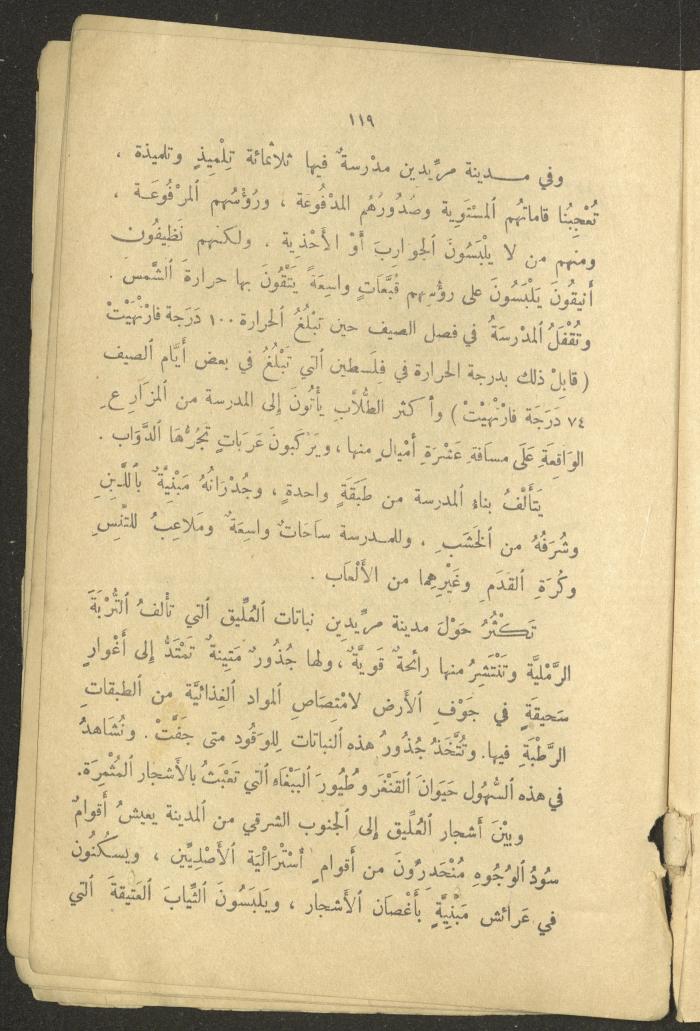 ١١٩
وفي مدينة مرِّيدين مدْرسةٌ فيها ثلاثمائة تِلْمِيذٍ وتلميذة ،
تُعْجِبُنا قاماتهُم ٱلمسْتَوِية وصُدُورُهُم المدْفُوعَة ، ورُؤْسُهم ٱلمرْفُوعَة ،
ومنهم من لا يلْبَسُونَ ٱلجوارِبَ أَوْ الأَحْذِية . ولكنهم نَظيفُونِ
أَنيقُونَ يَلْبَسُونَ على رؤُسِهم قُبَّعَاتٍ واسِعَةً يَتَّقُونَ بها حرارةَ ٱلشَّمْس .
وتُقْفَلُ ٱلمدْرَسَةُ في فصل الصيف حين تبْلُغُ ٱلحرارة ١٠٠ دَرَجة فارْنْهَيْتْ
( قابِلْ ذلك بدرجة الحرارة في فِلَسطين ٱلتي تَبْلُغُ في بعض أَيَّام ٱلصيف
٧٤ دَرَجة فارْنْهَيْتْ ) وأكثر الطُّلاَّبِ يأْتُونَ إلى المدرسة من ٱلمزَارِعِ
الوَاقِعَةِ عَلَى مسافةِ عَشْرَةِ أَمْيالٍ منها ، ويَرْكَبونَ عَرَباتٍ تجُرُّها ٱلدَّوَاب .
يَتَأَلْفُ بناءُ ٱلمدرسة من طَبَقَةٍ واحدةٍ ، وجُدْرَانُهُ مَبْنِيَّةٌ بٱللَّبِنِ
وشُرَفُهُ من ٱلخَشَبِ ، وللمدرسة ساحَاتٌ واسِعَةٌ ومَلاَعِبُ للتَّنِسِ
وكُرَةِ ٱلقدَمِ وغَيْرِهِما من الأَلْعَاب .
تَكْثُرُ حَوْلَ مدينة مرِّيدِين نباتات ٱلعُلِّيق ٱلتي تأْلفُ ٱلتُّرْبَةَ
الرَّمْليَّة وتَنْتَشِرُ منها رائحةٌ قويَّةٌ ، ولها جُذُورٌ مَتِينةٌ تمْتَدُّ إلى أَغْوارٍ
سَحيقَةٍ في جَوْفِ ٱلأَرض لامْتِصَاصِ ٱلمواد ٱلغِذائيَّة من الطبقاتِ
الرَّطْبَةِ فيها. وتُتَّخَذُ جُذُورُ هذه ٱلنباتات لِلوَقُود متى جَفَّتْ . ونُشَاهدُ
في هذه ٱلسُّهُول حَيَوانَ ٱلقَنْغَر وطُيورَ ٱلبَبْغَاء ٱلتي تَعْبَثُ بالأَشجار ٱلمُثْمِرَة.
وبيْنَ أَشجار ٱلعُلِّيق إلى ٱلجنوب الشرقي من ٱلمدينة يعيشُ أَقوامٌ
سُودُ ٱلوُجُوهِ مُنْحَدِرُونَ من أَقوامٍ اسْتْرَالْيَة ٱلأَصْلِيِّين ، ويسكُنُون
في عَرائش مَبْنِيَّةٍ بأَغْصان ٱلأَشجار ، ويَلبَسُونَ ٱلثِّيابَ ٱلعَتيقةَ ٱلتي